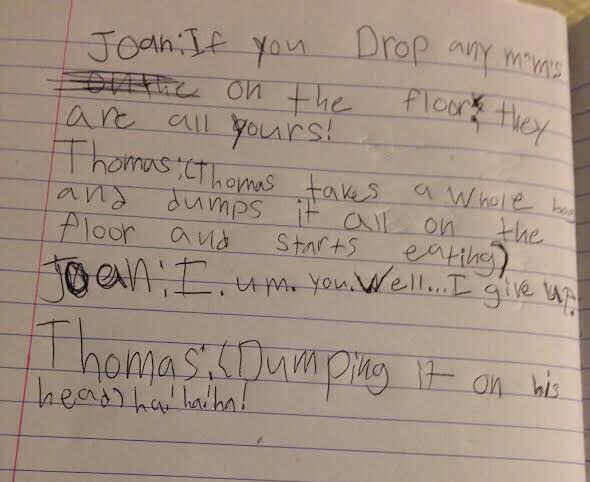 Joan: If you Drop any m&m's
on the floor, they
are all yours!
Thomas: (Thomas takes a whole bag
and dumps it all on the
floor and starts eating)
Joan: I. um. you. Well... I give up.
Thomas: (Dumping it on his
head) ha! ha! ha!